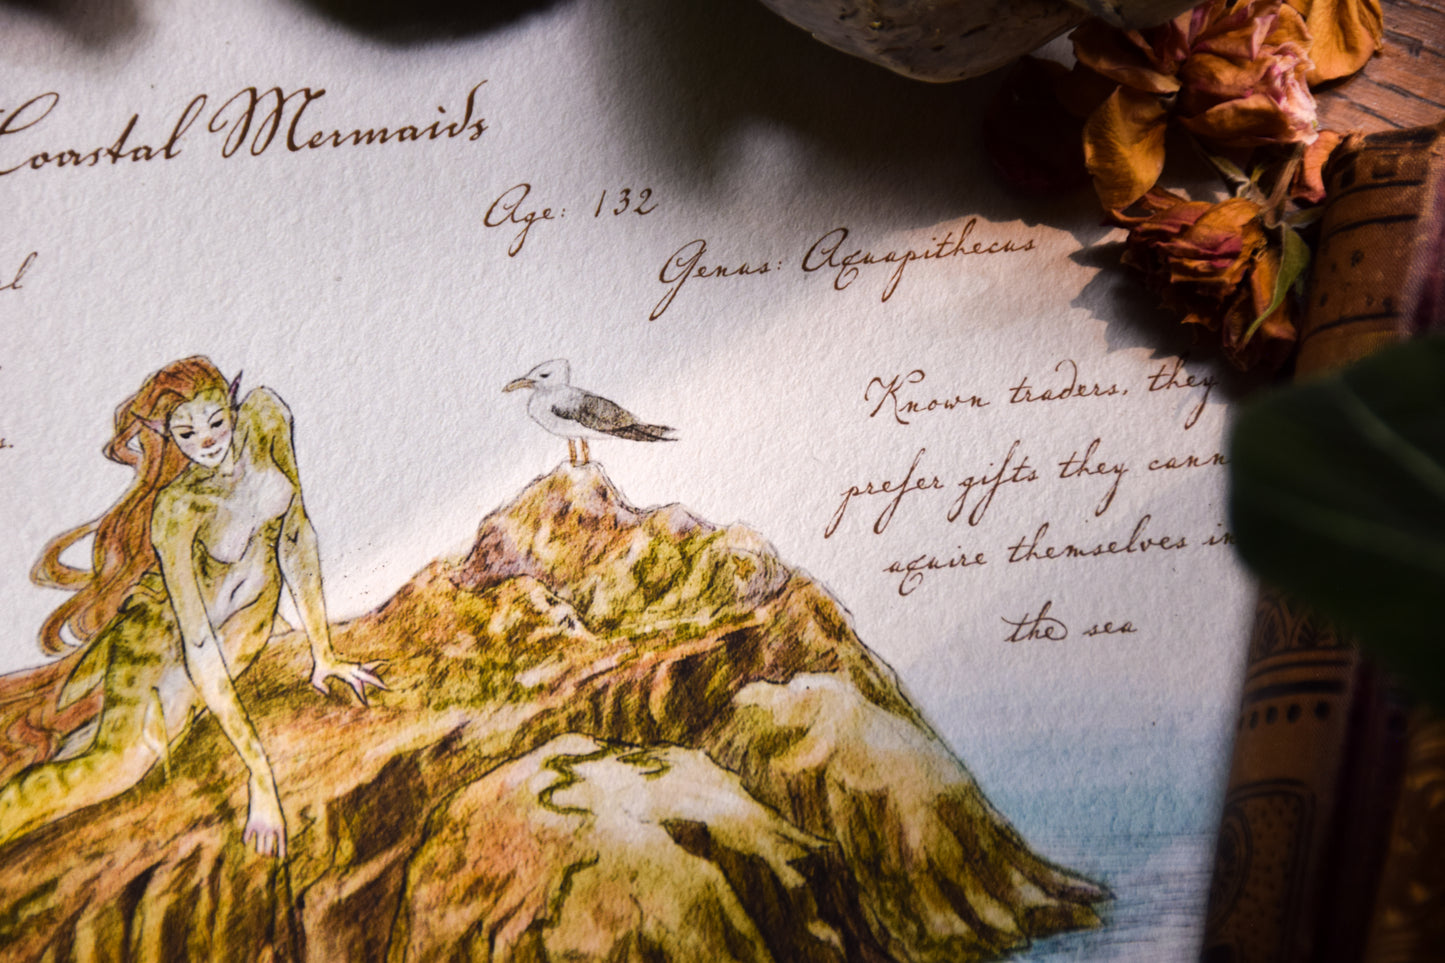 Coastal Mermaids
Age: 132
Genus: Aquapithecus
Known traders, they
prefer gifts they cann
aquire themselves in
the sea